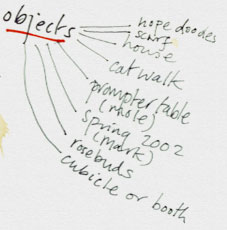 objects
nope doodes
scarf
house
cat walk
prompter table
(whole)
spring 2002
(mark)
rosebuds
cubicle or booth